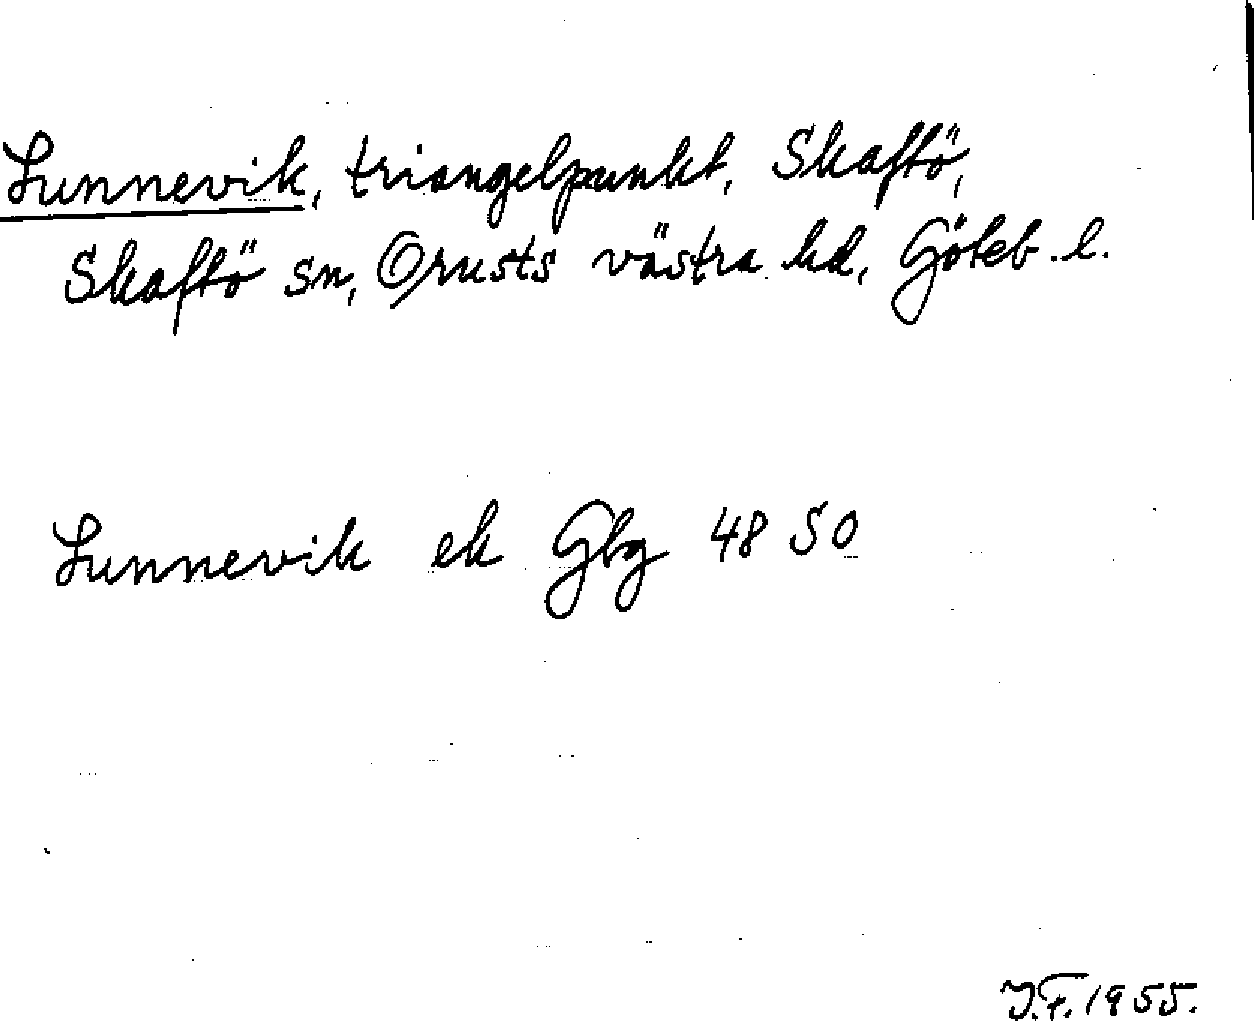 Lunnevik, triangelpunkt, Skaftö,
Skaftö sn, Orusts västra hd, Göteb. l.
Lunnevik ek Gbg 48 SO
J.F. 1955.